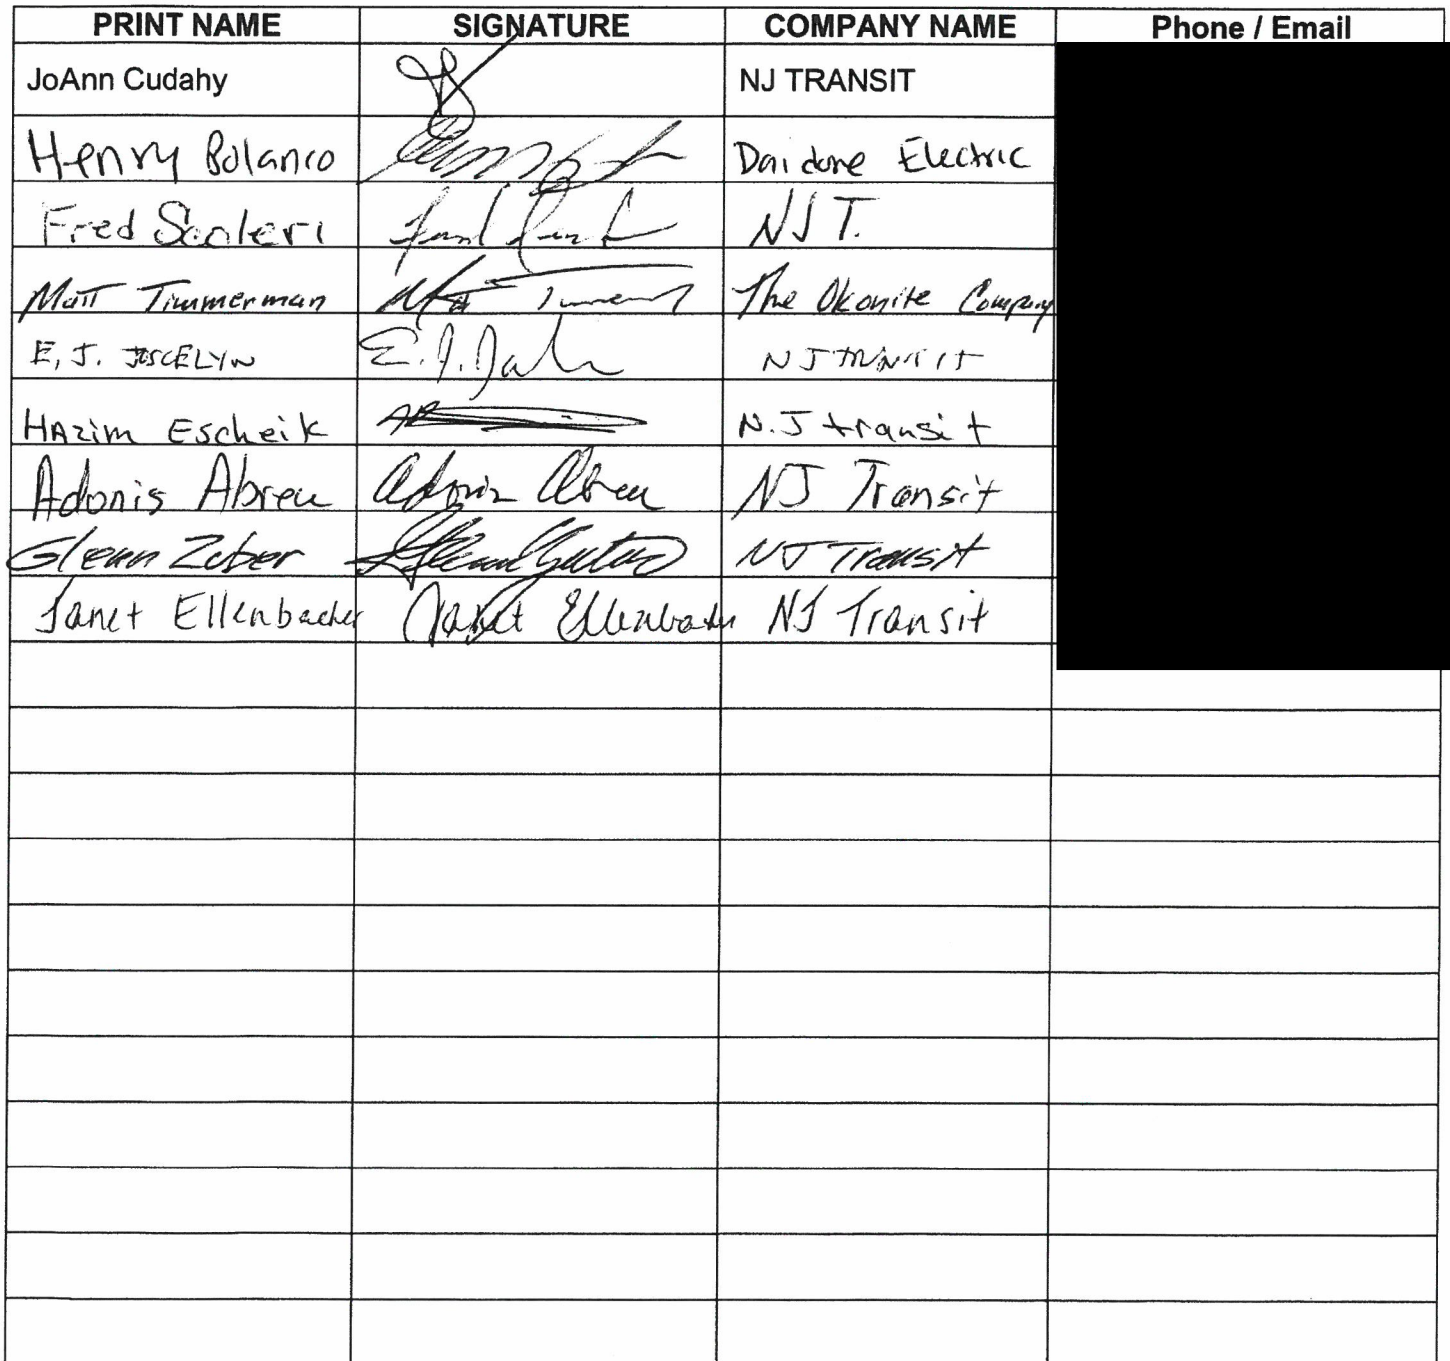 PRINT NAME SIGNATURE COMPANY NAME Phone / Email
JoAnn Cudahy NJ TRANSIT
Henry Bolanco Daidone Electric
Fred Scoleri NJT.
Matt Timmerman The Okonite Company
E, J. JOSCELYN E.J. NJ TRANSIT
HAzim Escheik N.J transit
Adonis Abreu Adonis Abreu NJ Transit
Glenn Zuber NJ Transit
Janet Ellenbacher Janet Ellenbacher NJ Transit